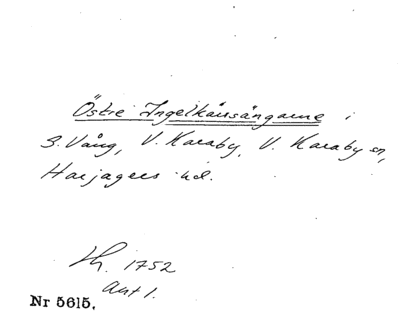 Östre Ingelkånsångarne i
3. Vång, V. Karaby, V. Karaby sn,
Harjagers hd.
Lh. 1752
Akt 1.
Nr 5615.